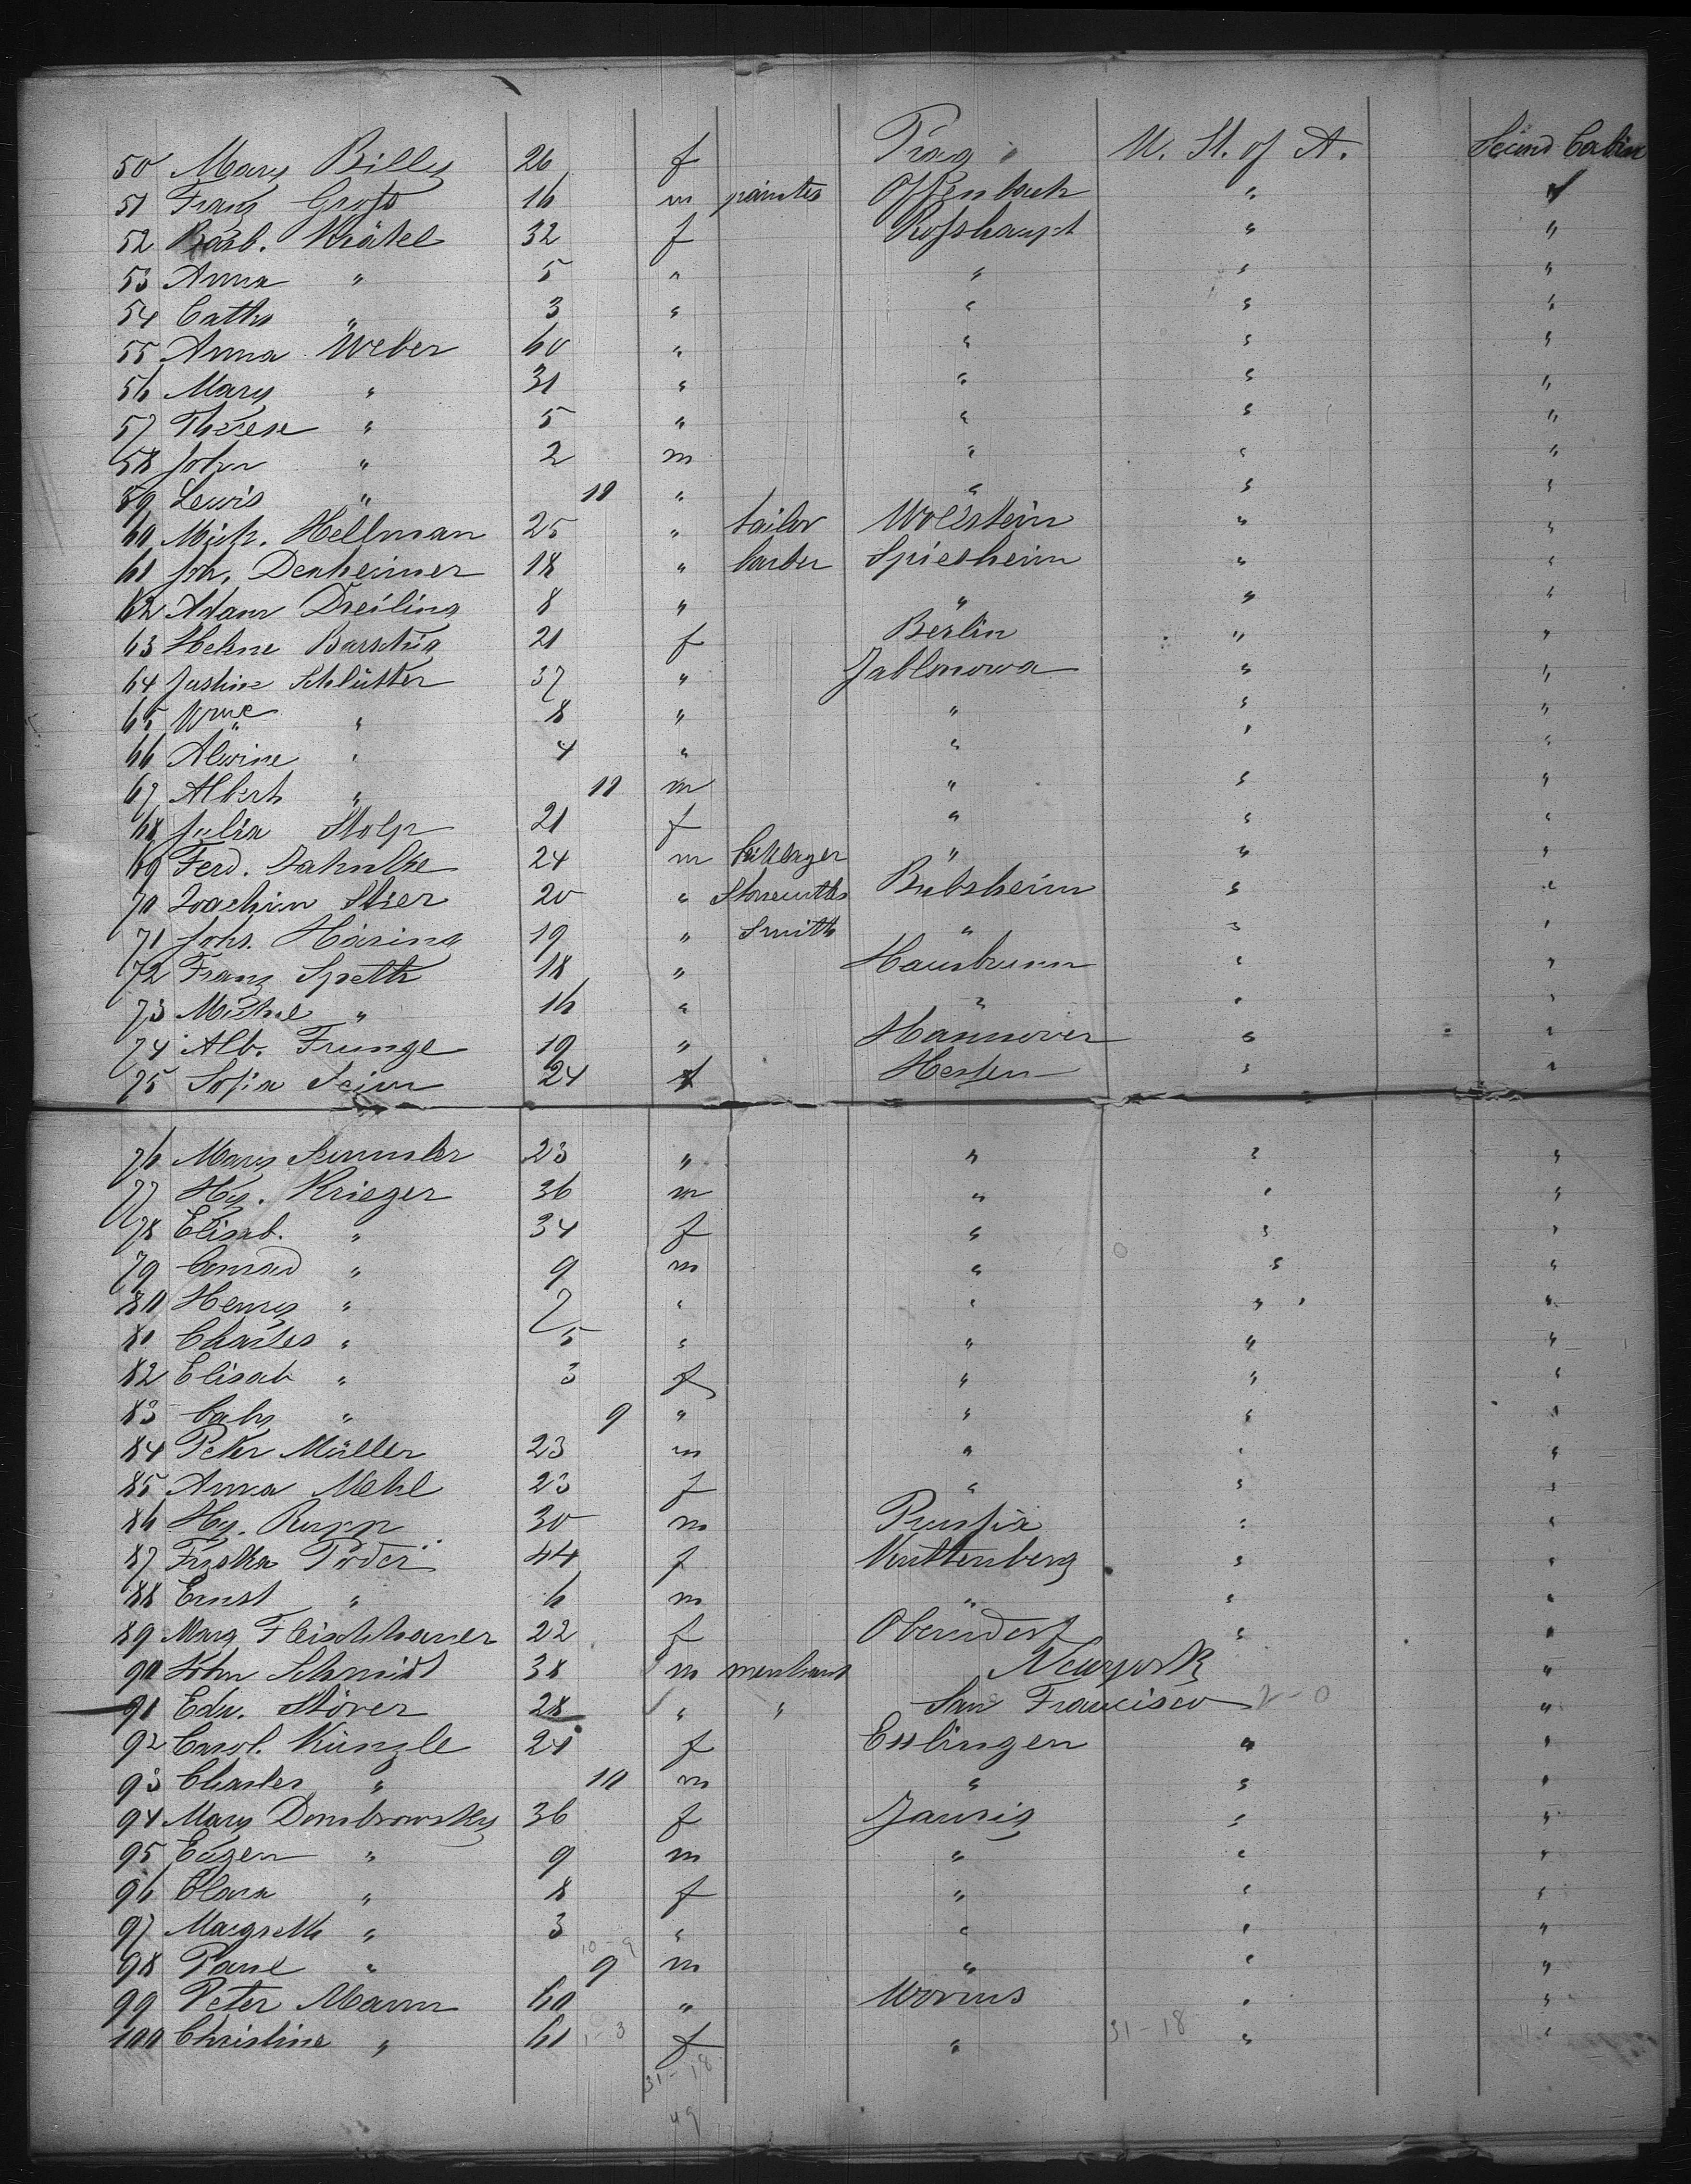 50 Mary Billy 26 f Prag U. St. of A. Second Cabin
51 Franz Groß 16 m painter Offenbach " "
52 Barb. Krätel 32 f Roßhaupt " "
53 Anna " 5 " " " "
54 Cath. " 3 " " " "
55 Anna Weber 60 " " " "
56 Mary " 31 " " " "
57 Therese " 5 " " " "
58 John " 2 m " " "
59 Lewis " 10 " " " "
60 Mich. Hellman 25 " tailor Wolstein " "
61 Joh. Denheimer 18 " barber Spiesheim " "
62 Adam Dreiling 8 " " " "
63 Helene 21 f Berlin " "
64 Justine Schlütter 37 " Jablonowa " "
65 Wme " 8 " " " "
66 Alwine " 4 " " " "
67 Albert " 10 m " " "
68 Julia Stolp 21 f " " "
69 Ferd. Jahnke 24 m " " "
70 Joachim Stier 20 " Bubsheim " "
71 Johs. Häring 19 " Smith " " "
72 Franz Speth 18 " Hausbrunn " "
73 Michael " 16 " " " "
74 Alb. Frunge 19 " Hannover " "
75 Sofia Seim 24 f Hessen " "
76 Mary Semmler 23 " " " "
77 Hy. Krieger 36 m " " "
78 Elisab. " 34 f " " "
79 Conrad " 9 m " " "
80 Henry " 7 " " " "
81 Charles " 5 " " " "
82 Elisab " 3 f " " "
83 baby " 9 " " " "
84 Peter Müller 23 m " " "
85 Anna Mehl 23 f " " "
86 Hy. Rupp 30 m Prussia " "
87 Fzska 44 f Kuttenberg " "
88 Ernst " 6 m " " "
89 Mary Fleischhauer 22 f Oberndorf " "
90 John Schmidt 38 m merchant Newyork "
91 Edw. Stöver 28 " " San Francisco 2-0 "
92 Carol. Künzle 21 f Esslingen " "
93 Charles " 10 m " " "
94 Mary Dombrowsky 36 f " "
95 Eugen " 9 m " " "
96 Clara " 8 f " " "
97 Margreth " 3 " " " "
10-9
98 Paul " 9 m " " "
99 Peter Mann 60 " Worms " "
100 Christine " 61 1-3 f " 31-18 " "
31-18
49